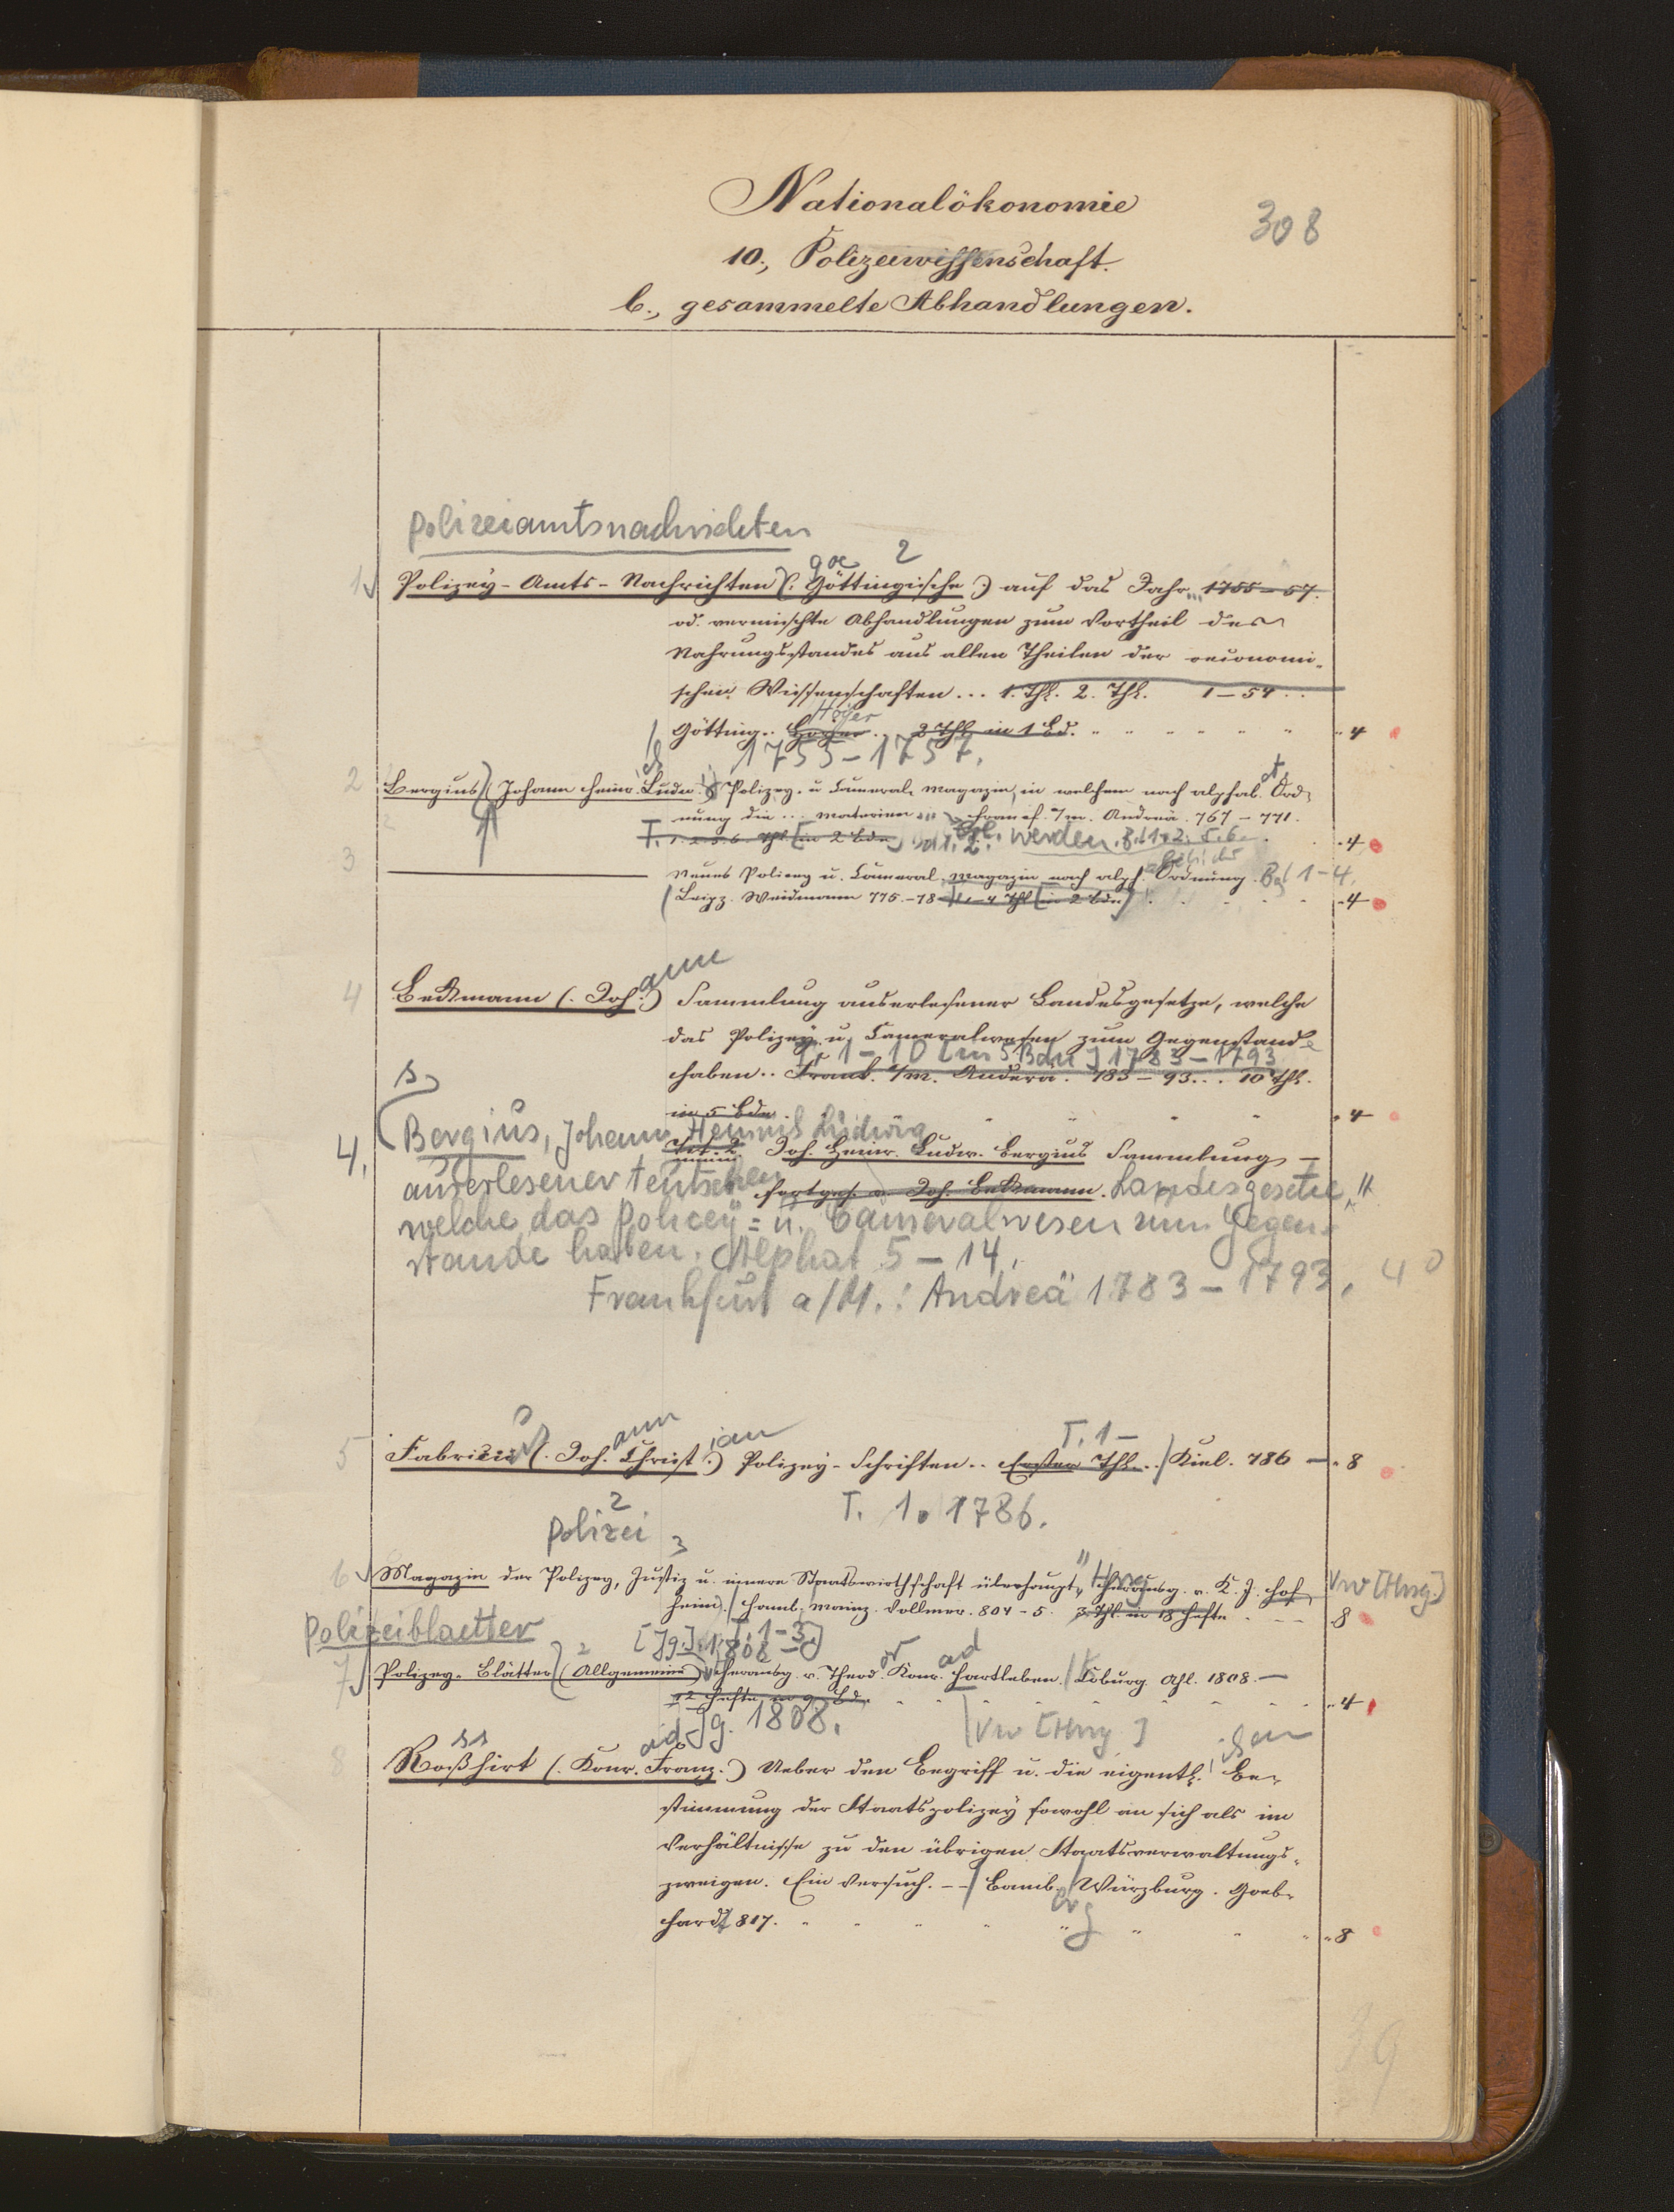 Nationalökonomie
308
10., Polizeiwissenschaft.
b., gesammelte Abhandlungen.
Polizeiamtsnachrichten
goe 2
1 Polizey-Amts-Nachrichten (: Göttingische :) auf das Jahr... 1755-57.
od. vermischte Abhandlungen zum Vortheil des
Nahrungsstandes aus allen Theilen der oeconomi-
schen Wissenschaften... 1. Thl. 2. Thl. 1-54..
Höjer
Götting. 2 Thl. in 1 Bd. 4
1755-1757.
2 Bergius (Johann Heinr. Ludw.) Polizey- u Cameral-Magazin, in welchem nach alphab. Ord-
nung die ... Materien ... Francf. a/m. Andreä. 767-771.
T. 1. 2. 5. 6. Thl. (in 2 Bdn) werden. Bd 1. 2. 5. 6. 4
3 Neues Policey u. Cameral-Magazin nach alph. Ordnung. Bd 1-4.
(Leipz. Weidmann 775-78 1-4 Thl (in 2 Bdn) 4
ann
4 Beckmann (. Joh.) Sammlung auserlesener Landesgesetze, welche
das Polizey u. Cameralwesen zum Gegenstande
1-10 [in 5 Bdn] 1783-1793
haben.. Frankf. a/m. Andreä. 783-93... 10 Thl.
in 5 Bdn. 4
4, Bergius, Johann Heinrich Ludwig
Joh. Heinr. Ludw. Bergius Sammlung -
auserlesener teutschen
fortges. v. Joh. Beckmann. Landesgesetze,
welche das Policey= u. Cameralwesen zum Gegen-
stande haben. Alphat 5-14,
Frankfurt a/M.: Andreä 1783-1793. 4°
ann ian T. 1-
5 Fabricius (. Joh. Christ.) Polizey-Schriften.. Erster Thl... Kiel. 786 - 8
T. 1. 1786.
2
Polizei 3
6 Magazin der Polizey, Justiz u. innere Staatswirthschaft überhaupt, Hrsg herausg. v. K. J. Hof
heim. Hamb. Mainz. Vollmer. 804-5. 3 Thl. in 18 Hefte 8
Vw [Hrsg.]
Polizeiblaetter
[Jg.] 1808 -
7 Polizey-Blätter (Allgemeine) Herausg. v. Theod. Konr. Hartleben. Koburg Ahl. 1808.-
12 Hefte in 9 Bdn. 4
Jg. 1808.
Vw [Hrsg]
ss ad
8 Roßhirt (. Konr. Franz.) Ueber den Begriff u. die eigentl. Be-
stimmung der Staatspolizey sowohl an sich als im
Verhältnisse zu den übrigen Staatsverwaltungs-
zweigen. Ein Versuch. -- Bamb. Würzburg. Goeb-
hardt 817. 8
39